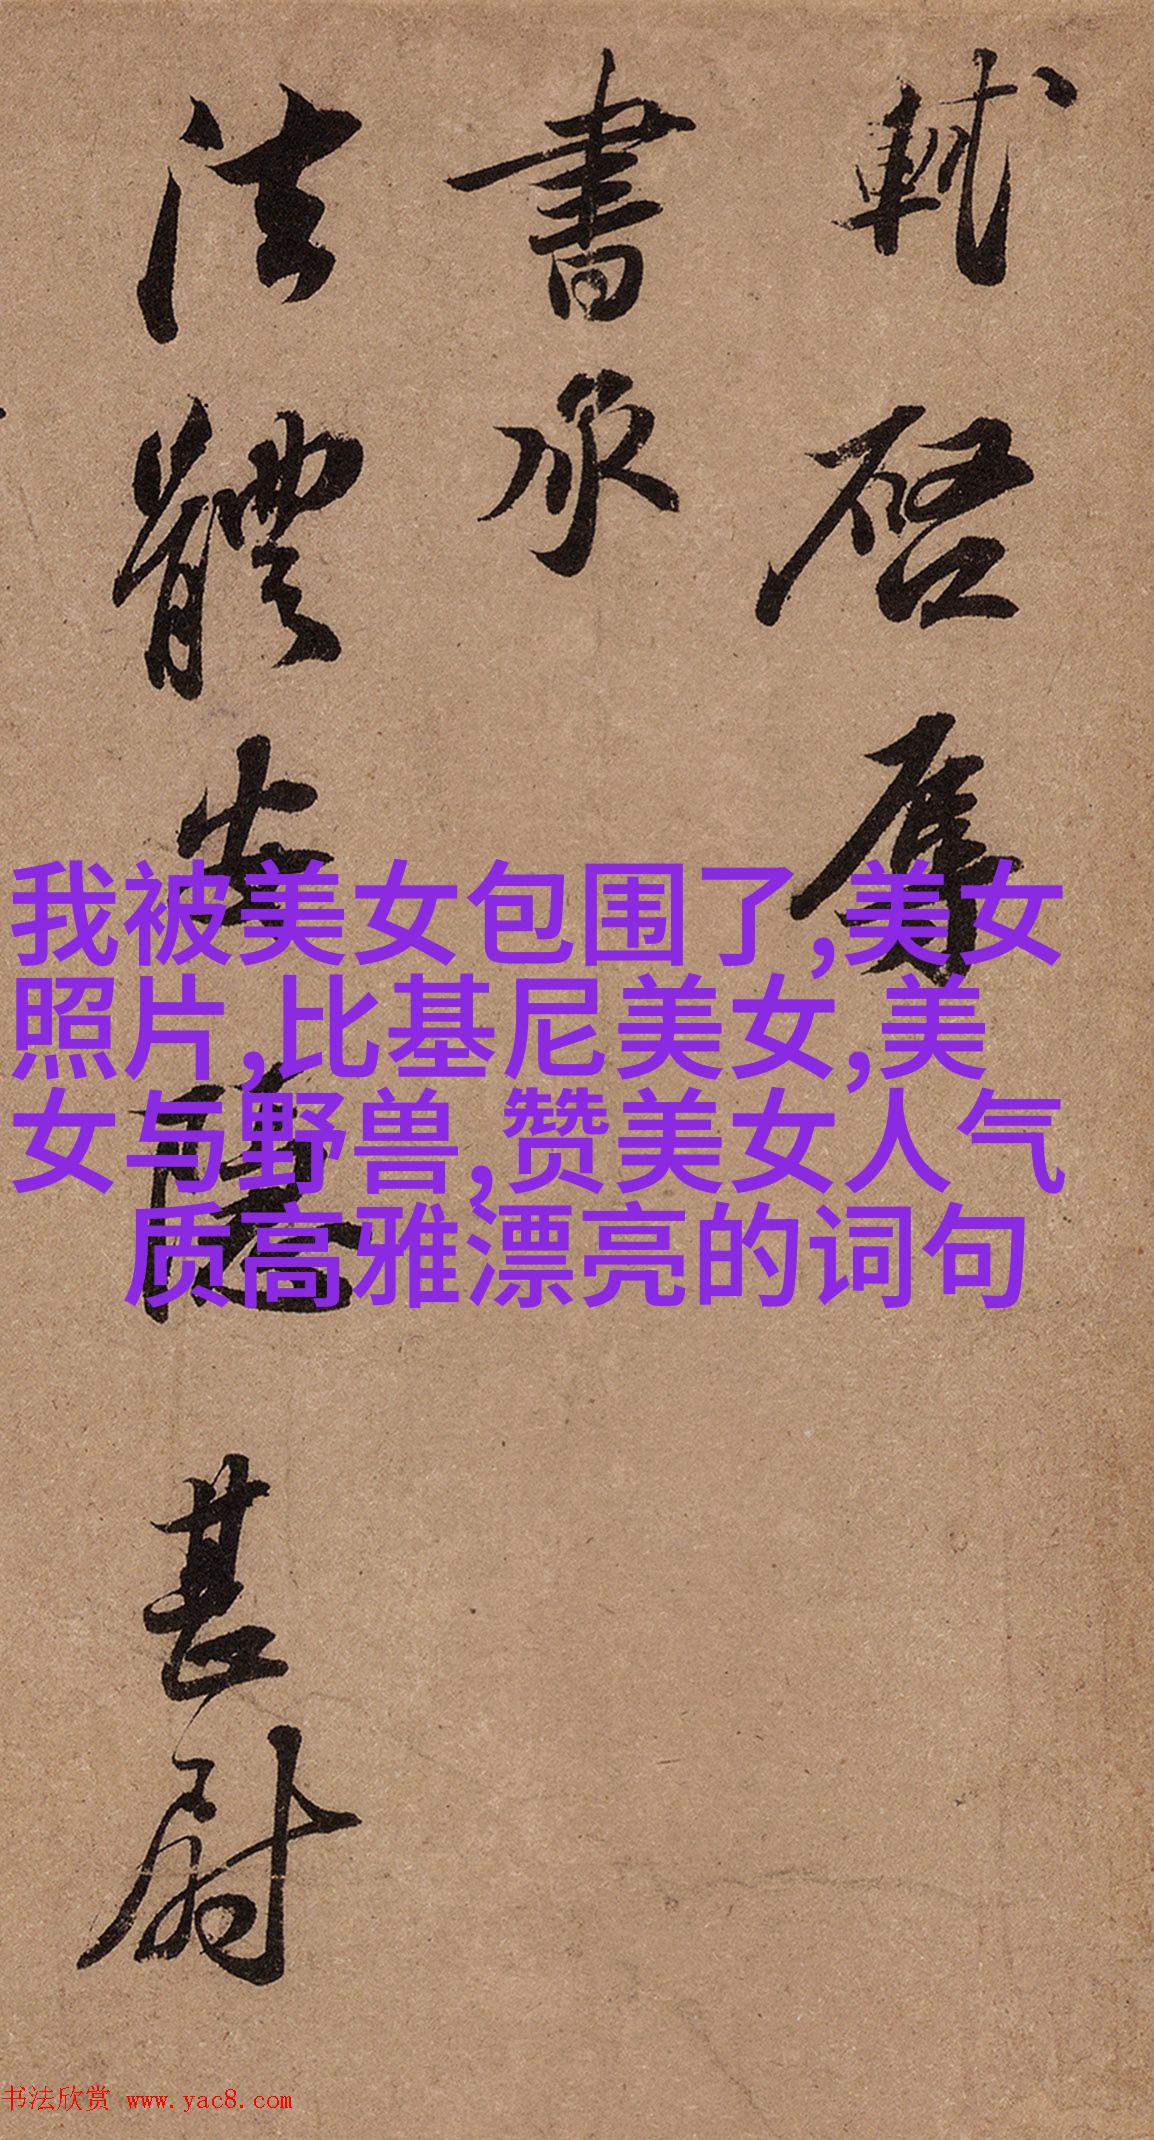 軾啓辱
書承
法體安隱甚慰
我被美女包围了,美女
照片,比基尼美女,美
女与野兽,赞美女人气
质高雅漂亮的词句
书法欣赏 www.yac8.com